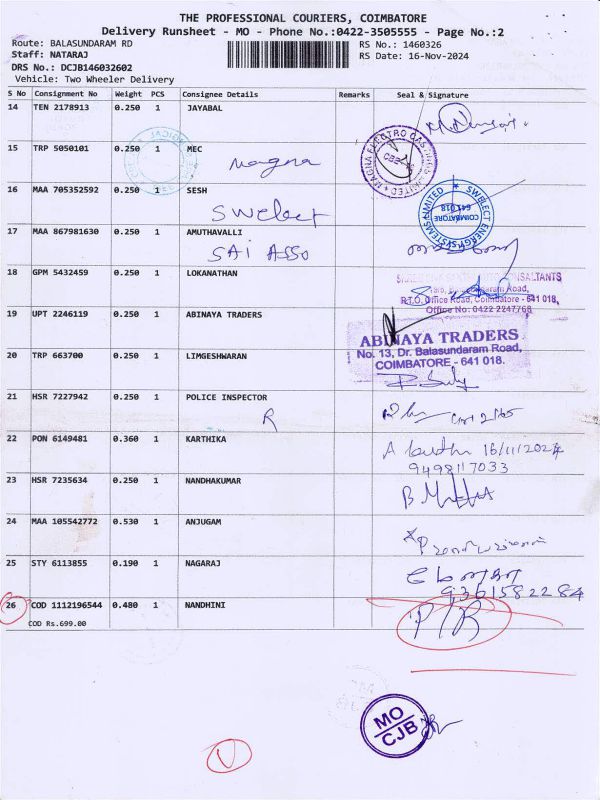 THE PROFESSIONAL COURIERS, COIMBATORE
Delivery Runsheet - MO - Phone No.:0422-3505555 - Page No.:2
Route: BALASUNDARAM RD RS No.: 1460326
Staff: NATARAJ RS Date: 16-Nov-2024
DRS No.: DCJB146032602
Vehicle: Two Wheeler Delivery
S No Consignment No Weight PCS Consignee Details Remarks Seal & Signature
14 TEN 2178913 0.250 1 JAYABAL
15 TRP 5050101 0.250 1 MEC
magna
MAGNA ELECTRO CASTINGS LIMITED
CBE-
16 MAA 705352592 0.250 1 SESH
Swelect
SWELECT ENERGY SYSTEMS LIMITED
COIMBATORE
641 018
17 MAA 867981630 0.250 1 AMUTHAVALLI
SAI ASSO
18 GPM 5432459 0.250 1 LOKANATHAN
CONSULTANTS
Road,
R.T.O. Office Road, Coimbatore - 641 018,
Office No: 0422 2247768
19 UPT 2246119 0.250 1 ABINAYA TRADERS
ABINAYA TRADERS
No. 13, Dr. Balasundaram Road,
COIMBATORE - 641 018.
20 TRP 663700 0.250 1 LIMGESHWARAN
21 HSR 7227942 0.250 1 POLICE INSPECTOR
R
2165
22 PON 6149481 0.360 1 KARTHIKA
16/11/2024
9498117033
23 HSR 7235634 0.250 1 NANDHAKUMAR
24 MAA 105542772 0.530 1 ANJUGAM
25 STY 6113855 0.190 1 NAGARAJ
9361582284
26 COD 1112196544 0.480 1 NANDHINI
P/R
COD Rs.699.00
MO
CJB